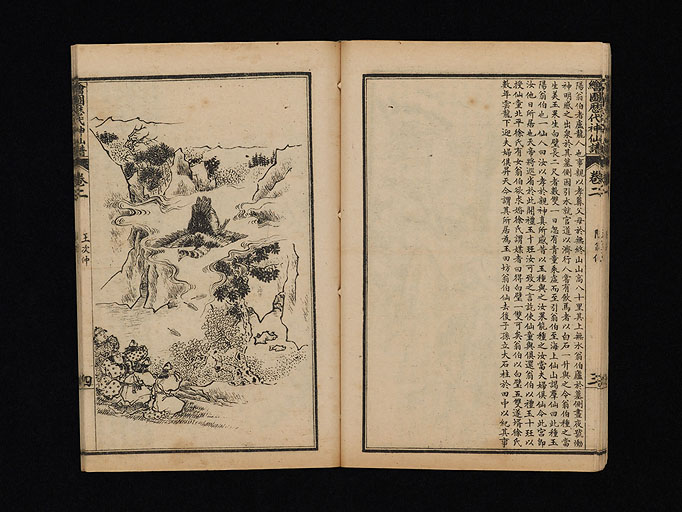 繪圖歷代神仙譜
卷二
陽翁伯
三
陽翁伯者盧龍人也事親以孝葬父母於無終山山高八十里其上無水翁伯廬於墓側晝夜號慟
神明感之出泉於其墓側因引水就官道以濟行人嘗有飲馬者以白石一升與之令翁伯種之當
生美玉果生白璧長二尺者數雙一日忽有青童乘虛而至引翁伯至海上仙山謁羣仙曰此種玉
陽翁伯也一仙人曰汝以孝於親神真所感昔以玉種與之汝果能種之汝當夫婦俱仙今此宮即
汝他日所居也天帝將巡省於此開禮玉十班汝可致之言訖使仙童與俱還翁伯以種玉十班以
授仙童北平徐氏有女翁伯欲求婚徐氏謂媒者曰得白璧一雙可矣翁伯以白璧五雙遂壻徐氏
數年雲龍下迎夫婦俱昇天今謂其所居為玉田坊翁伯仙去後子孫立大石柱於田中以紀其事
繪圖歷代神仙譜
卷二
王次仲
四